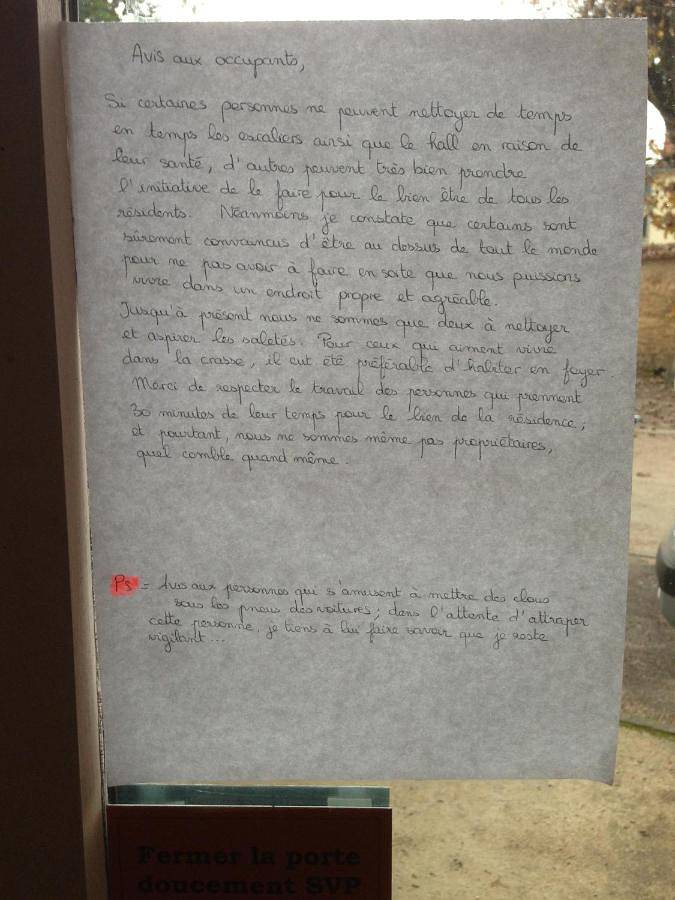 Avis aux occupants,
Si certaines personnes ne peuvent nettoyer de temps
en temps les escaliers ainsi que le hall en raison de
leur santé, d'autres peuvent très bien prendre
l'initiative de le faire pour le bien être de tous les
résidents. Néanmoins je constate que certains sont
sûrement convaincus d'être au dessus de tout le monde
pour ne pas avoir à faire en sorte que nous puissions
vivre dans un endroit propre et agréable.
Jusqu'à présent nous ne sommes que deux à nettoyer
et aspirer les saletés. Pour ceux qui aiment vivre
dans la crasse, il eut été préférable d'habiter en foyer.
Merci de respecter le travail des personnes qui prennent
30 minutes de leur temps pour le bien de la résidence ;
et pourtant, nous ne sommes même pas propriétaires,
quel comble quand même.
Ps = Avis aux personnes qui s'amusent à mettre des clous
sous les pneus des voitures ; dans l'attente d'attraper
cette personne, je tiens à lui faire savoir que je reste
vigilant...
Fermer la porte
doucement SVP